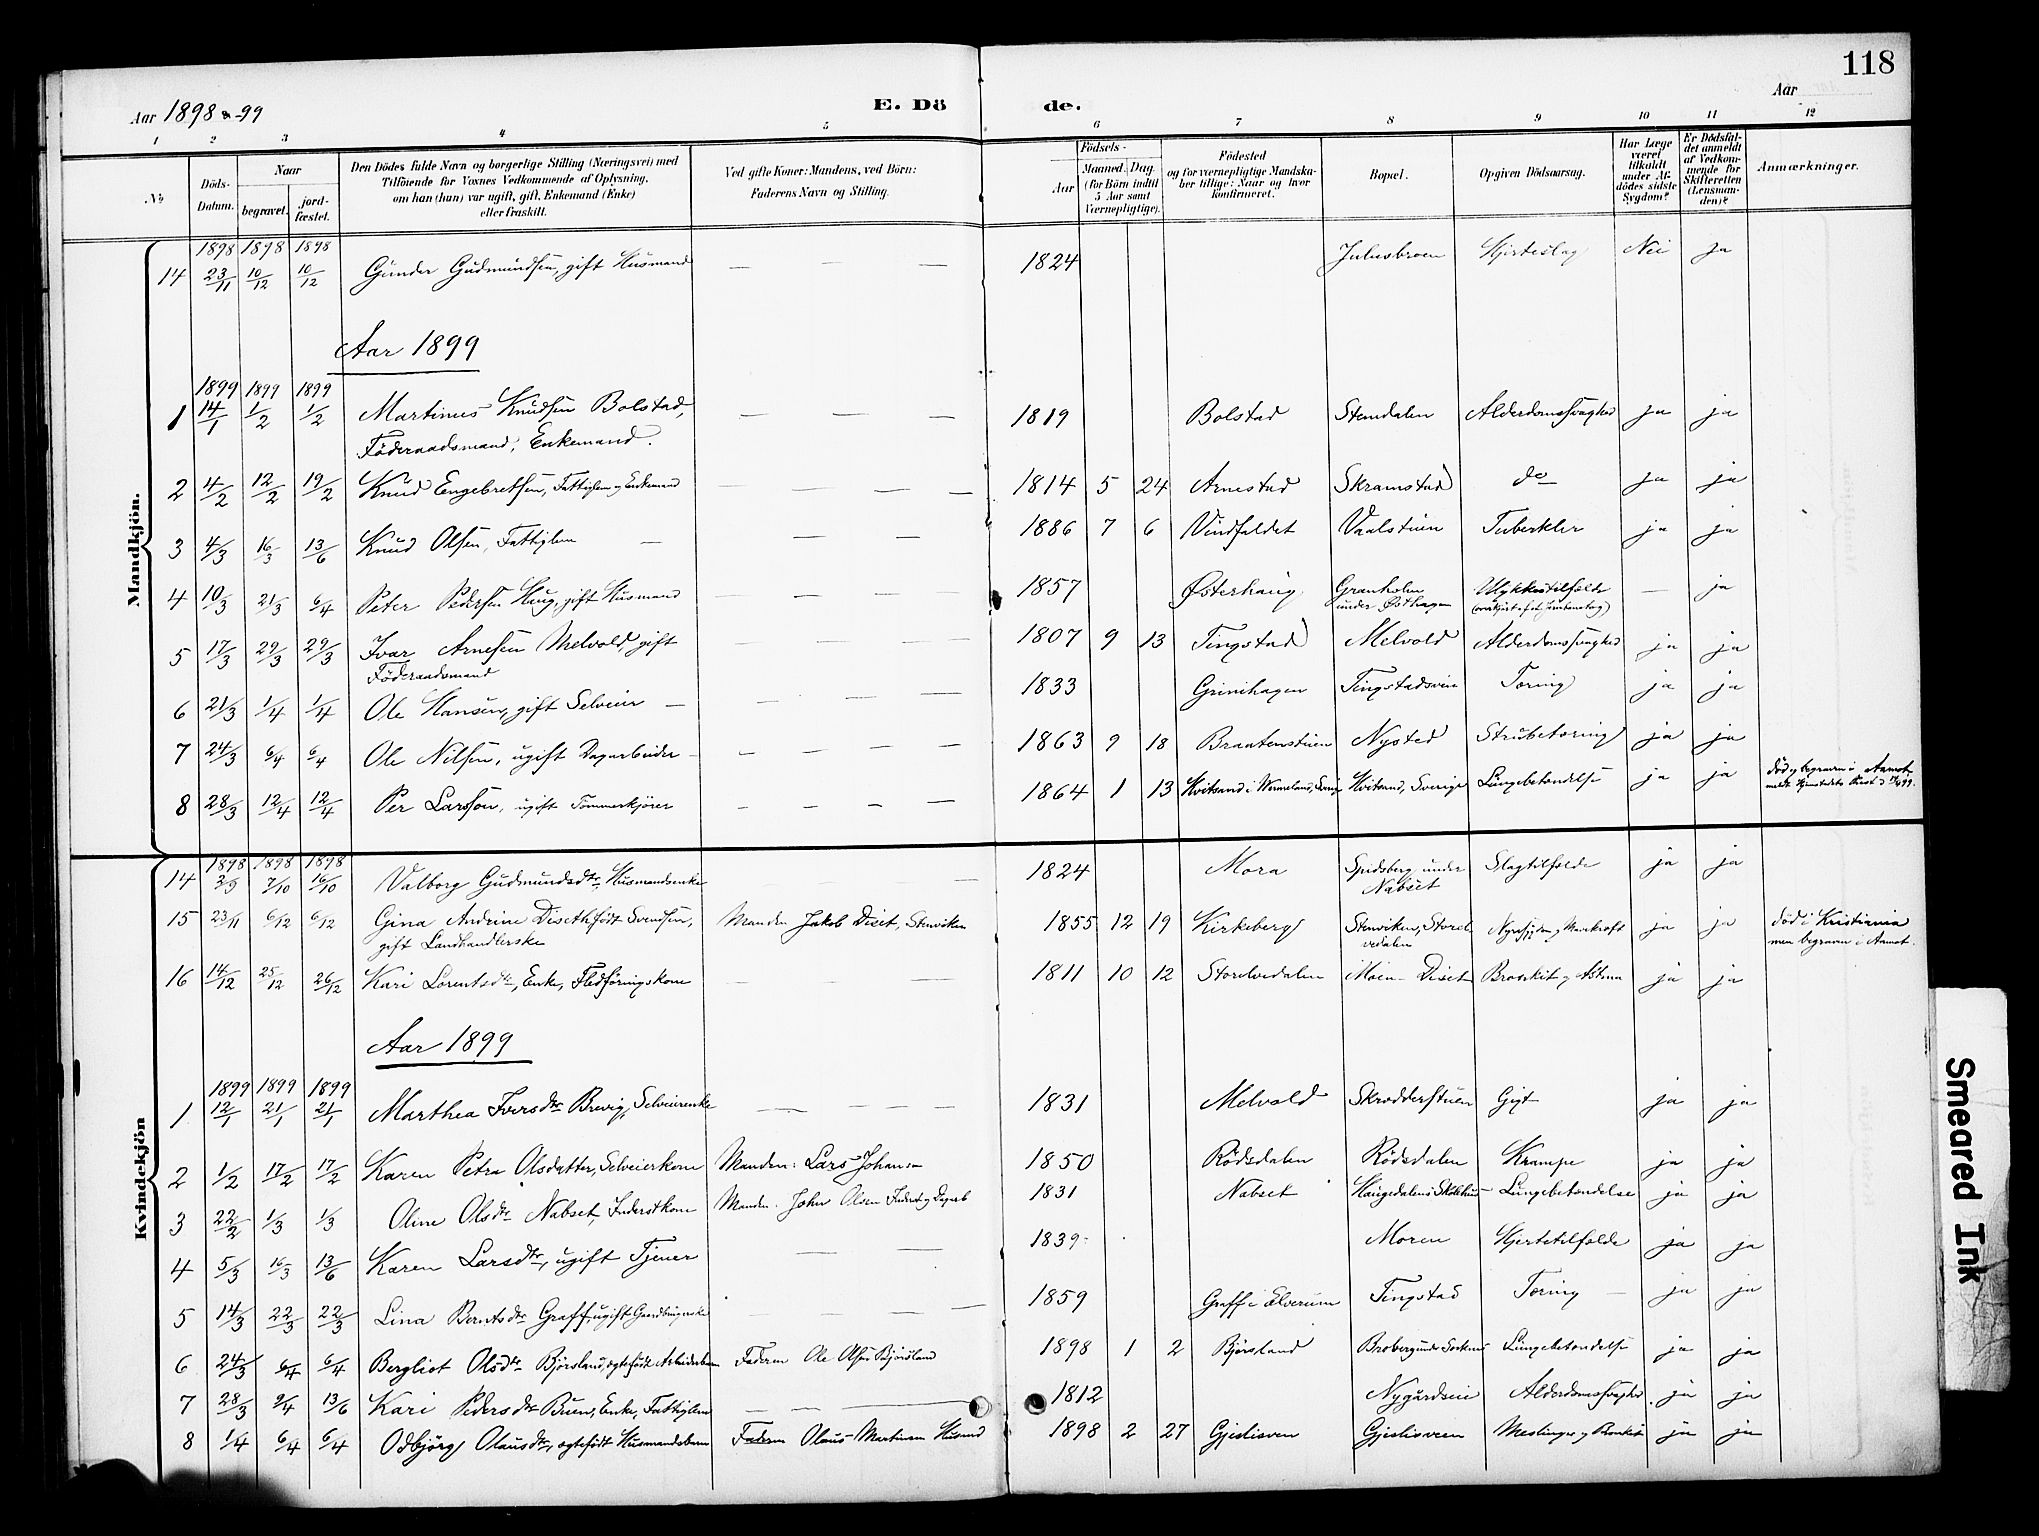 118
Aar 1898 & -99
E. Dö de.
Aar
1 2 3 4 5 6 7 8 9 10 11 12
№ Döds-Datum. Naar begravet. jord-fæstet. Den Dödes fulde Navn og borgerlige Stilling (Næringsvei) med Tilföiende for Voxnes Vedkommende af Oplysning, om han (hun) var ugift, gift, Enkemand (Enke) eller fraskilt. Ved gifte Koner: Mandens, ved Börn: Faderens Navn og Stilling. Födsels- Aar Maaned. Dag. (for Börn indtil 5 Aar samt Værnepligtige). Födested og for værnepligtige Mandska-ber tillige: Naar og hvor konfirmeret. Bopæl. Opgiven Dödsaarsag. Har Læge været tilkaldt under Af-dödes sidste Sygdom? Er Dödsfal-det anmeldt af Vedkom-mende for Skifteretten (Lensman-den)? Anmærkninger.
Mandkjön.
1898 1898 1898
14 23/11 10/12 10/12 Gunder Gudmundsen, gift Husmand — — — 1824 Julusbroen Hjerteslag Nei ja
Aar 1899
1899 1899 1899
1 14/1 1/2 1/2 Martinus Knudsen Bolstad, — — — 1819 Bolstad Stemdalen Alderdomssvaghed ja ja
Föderaadsmand, Enkemand.
2 4/2 12/2 19/2 Knud Engebretsen, Fattiglem og Enkemand — — — 1814 5 24 Arnestad Skramstad do ja ja
3 4/3 16/3 13/6 Knud Olsen, Fattiglem — — — 1886 7 6 Vindfaldet Vaalstuen Tuberkler ja ja
4 10/3 21/3 6/4 Peter Pedersen Haug, gift Husmand — — — 1857 Østerhaug Granholm under Østhagen Ulykkestilfælde — ja
5 17/3 29/3 29/3 Ivar Arnesen Melvold, gift — — — 1807 9 13 Tingstad Melvold Alderdomssvaghed ja ja
Föderaadsmand
6 21/3 1/4 1/4 Ole Hansen, gift Selveier — — — 1833 Grinihagen Tingstadsveen Tæring ja ja
7 24/3 6/4 6/4 Ole Nilsen, ugift Dagarbeider — — — 1863 9 18 Braatenstuen Nysted Strubetæring ja ja
8 28/3 12/4 12/4 Per Larsson, ugift Tömmerkjører — — — 1864 1 13 Hvitsand i Wermeland, Sverig Hvitsand, Sverige Lungebetændelse ja ja död og begraven i Aamot
Kvindekjön
1898 1898 1898
14 2/9 7/10 16/10 Valborg Gudmundsdtr, Husmandsenke — — — 1824 Mora Spidsberg under Nabset Slagtilfælde ja ja
15 23/11 6/12 6/12 Gina Andrine Diseth födt Svendsen, Manden Jakob Diset, Stenviken 1855 12 19 Kirkeberg Stenviken, Storel-vedalen ja ja död i Kristiania
gift Landhandlerske men begraven i Aamot.
16 14/12 25/12 26/12 Kari Lorentsdtr, Enke, Fledføringskone — — — 1811 10 12 Storelvedalen Moen - Diset Bronkit og Astma ja ja
Aar 1899
1899 1899 1899
1 12/1 21/1 21/1 Marthea Iversdtr Brevig, Selveierenke — — — 1831 Melvold Skrædderstuen Gigt ja ja
2 1/2 17/2 17/2 Karen Petra Olsdatter, Selveierkone Manden: Lars Johans 1850 Rödsdalen Rödsdalen Krampe ja ja
3 22/2 1/3 1/3 Oline Olsdtr Nabset, Inderstkone Manden. John Olsen Inderst og Dagarb 1831 Nabset Haugedalens Skolehus Lungebetændelse ja ja
4 5/3 16/3 13/6 Karen Larsdtr, ugift Tjener — — 1839 Moren Hjertetilfælde ja ja
5 14/3 22/3 22/3 Lina Berntsdtr Graff, ugift — — — 1859 Graff i Elverum Tingstad Tæring — ja ja
6 24/3 6/4 6/4 Bergliot Olsdtr Björsland, ægtefödt Arbeiderbarn Faderen Ole Olsen Bjørsland 1898 1 2 Bjørsland Lungebetændelse ja ja
7 28/3 9/4 13/6 Kari Pedersdtr Buen, Enke, Fattiglem — — — 1812 Nygårdseie Alderdomssvaghed ja ja
8 1/4 6/4 6/4 Odbjörg Olausdtr, ægtefödt Husmandsbarn Faderen Olaus Martinsen Husmd 1898 2 27 Gjedisveen Gjedisveen Meslinger og Bronkit ja ja
Smeared Ink